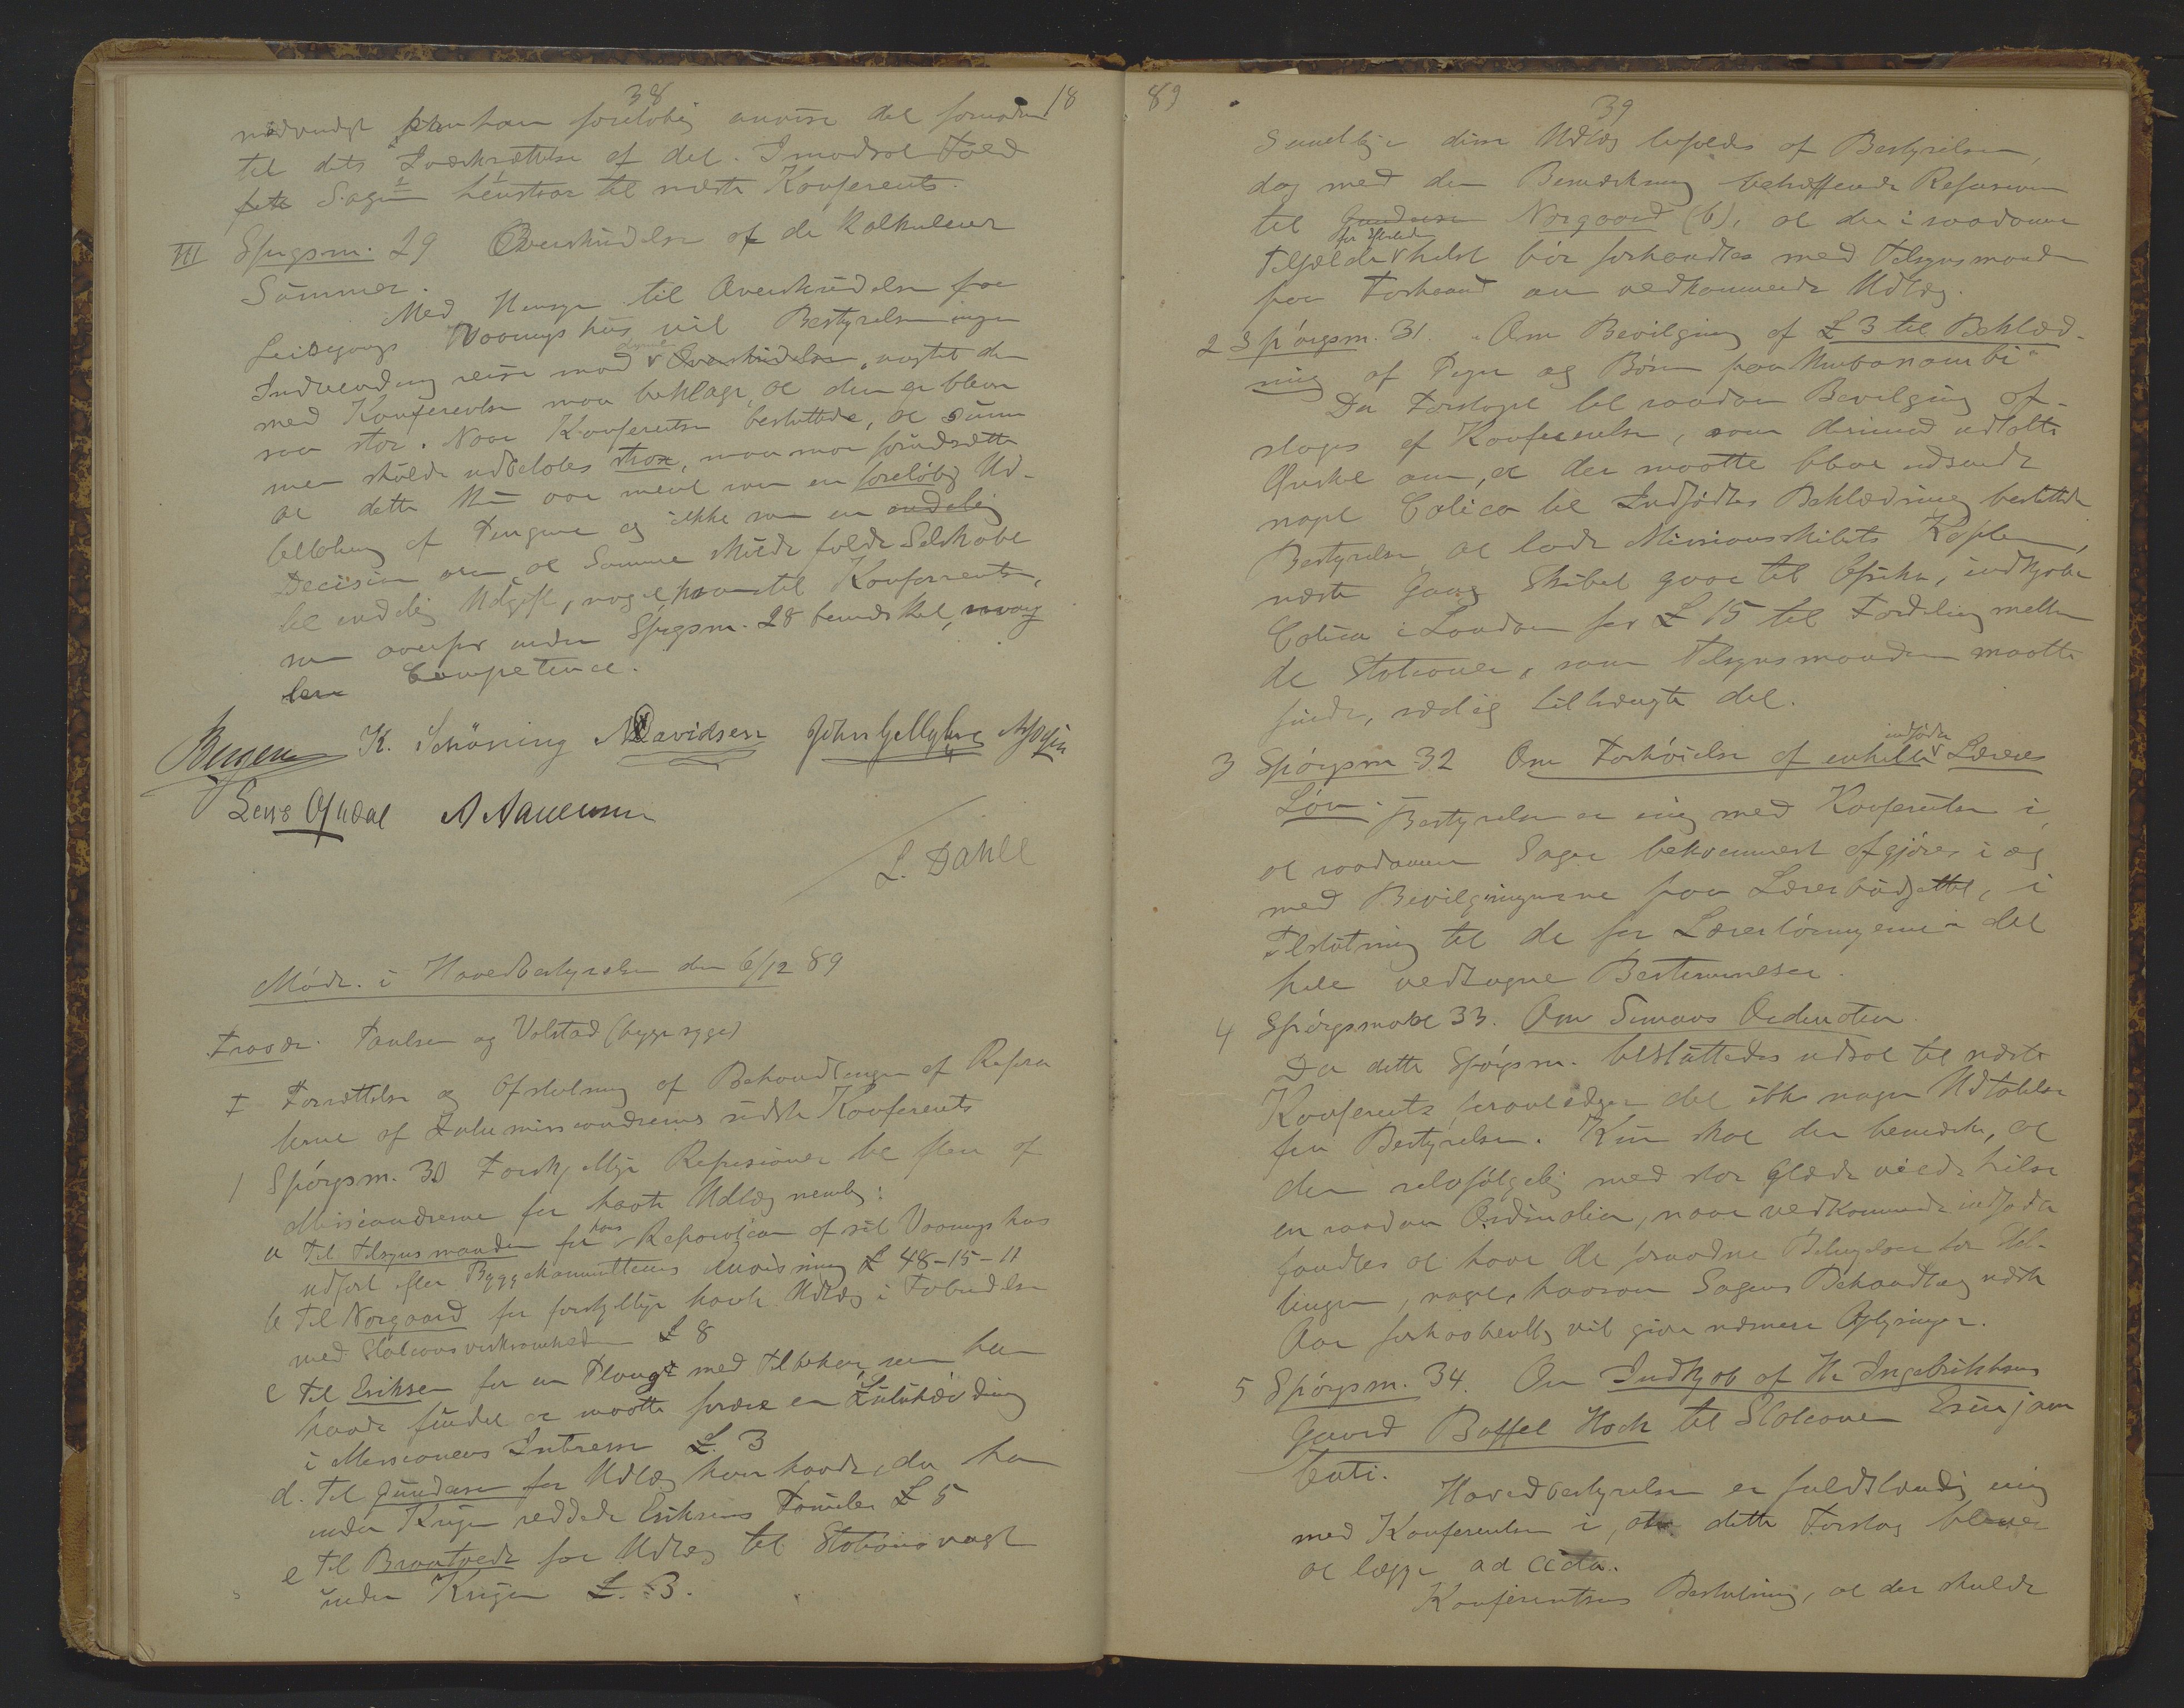 38
18
nødvendigt kan han foreløbig anvise det fornødne
til dets Iværksættelse af det. I modsat Fald
Sagen henstaar til næste Konferents.
III Spugsm. 29 Overskridelse af de kalkulerer
Summer.
Med Hensyn til Overskridelsen paa
Leisegangs Vaaningshus vil Bestyrelsen ingen
Indvending reise mod Overskridelsen, uagtet den
med Konferentsen maa beklage, at den er bleven
saa stor. Naar Konferentsen besluttede, at Sum
men skulde udbetales strax, maa man forudsætte
at dette kun var ment som en foreløbig Ud-
betaling af Pengene og ikke som en endelig
Decision om at Summen skulde falde Selskabet
til endelig Udgift, noget hvortil Konferentsen,
som ovenfor under Spugsm. 28 bemerket, mang
ler Competence.
K. Schöning Davidsen
L. Dahle
Møde i Hovedbestyrelsen den 6/12 89
Fravær. Paulsen og Volstad (begge syge)
I Fortsættelse og Afslutning af Behandlingen af Refera
terne af Zulumissionærernes sidste Konferents
1 Spórgsm. 30 Forskjellige Refusioner til flere af
Missionærerne for havte Udlæg nemlig:
a Til Tilsynsmanden for Reparation af sit Vaaningshus
udført efter Byggekommitteens Anvisning £ 48-15-11
b Til Norgaard for forskjellige havte Udlæg i Forbindelse
med Stationsvirksomheden £ 8
c Til Eriksen for en Plough med Tilbehør, som han
havde fundet at maatte forære en Zuluhøvding
i Missionens Intresse £. 3
d. Til Gundersen for Udlæg han havde, da han
under Krigen reddede Eriksens Familie £ 5
e Til Braatvedt for Udlæg til Stationsvagt
under Krigen £. 3.
89
39
Samtlige disse Udlæg bifaldes af Bestyrelsen,
dog med den Bemærkning betræffende Refusionen
til Norgaard (b), at der i saadanne
Tilfælde helst bør forhandles med Tilsynsmanden
paa Forhaand om vedkommende Udlæg.
2 Spórgsm. 31. Om Bevilgning af £ 3 til Beklæd-
ning af Piger og Børn paa Umbonambi
Da Forslaget til saadan Bevilgning af-
slages af Konferentsen, som derimod udtalte
Ønsket om, at der maatte blive udsendt
noget Calico til Indfødtes Beklædning besluttede
Bestyrelsen at lade Missionsskibets Kaptein,
næste Gang Skibet gaar til Afrika, indkjøbe
Calico i London for £ 15 til Fordeling mellem
de Stationer, som Tilsynsmanden maatte
finde, rædig tiltrængte det.
3 Spórgsm 32 Om Forhøielse af enkelte indfødte Læreres
Løn. Bestyrelsen er enig med Konferentsen i,
at saadanne Sager bekvemmest afgjøres i og
med Bevilgningerne paa Lærerbudgettet, i
Tilslutning til de for Lærerlønningerne i det
hele vedtagne Bestemmelser.
4 Spórgsmaal 33. Om Simons Ordination
Da dette Spórgsm. besluttedes udsat til næste
Konferents foranlediger det ikke nogen Udtalelse
fra Bestyrelsen. Kun skal der bemerkes, at
den selvfølgelig med stor Glæde vilde hilse
en saadan Ordination, naar vedkommende indfødte
fandtes at have de fornødne Betingelser for Stil-
lingen, noget, hvorom Sagens Behandling næste
Aar forhaabentlig vil give nærmere Oplysninger.
5 Spórgsm. 34. Om Indkjøb af Hr Ingebrikhsens
Gaard Boffel Hoch til Stationen Esinjam
buti.
Hovedbestyrelsen er fuldstændig enig
med Konferentsen i, at dette Forslag bliver
at lægge ad acta.
Konferentsens Beslutning, at der skulde